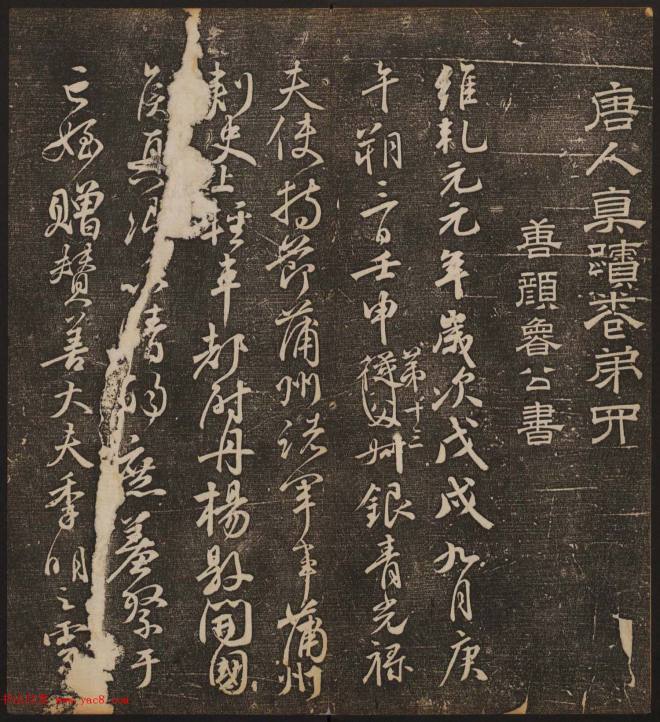 唐人真蹟卷弟四
善顏魯公書
維乾元元年歲次戊戌九月庚
午朔三日壬申第十三從父叔銀青光祿
夫使持節蒲州諸軍事蒲州
刺史上輕車都尉丹楊縣開國
侯真卿以清酌庶羞祭于
亡姪贈贊善大夫季明之靈
www.yac8.com